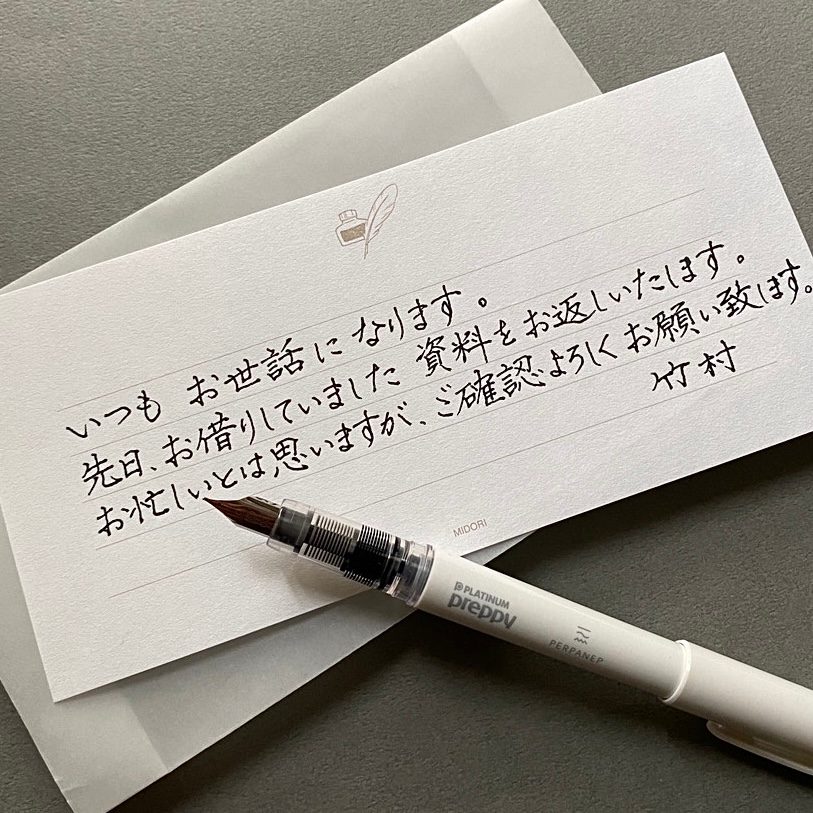 いつも お世話に なります。
先日、お借りしていました 資料を お返しいたします。
お忙しいとは思いますが、ご確認よろしく お願い致します。
竹村
MIDORI
PLATINUM
preppy
PERPANEP